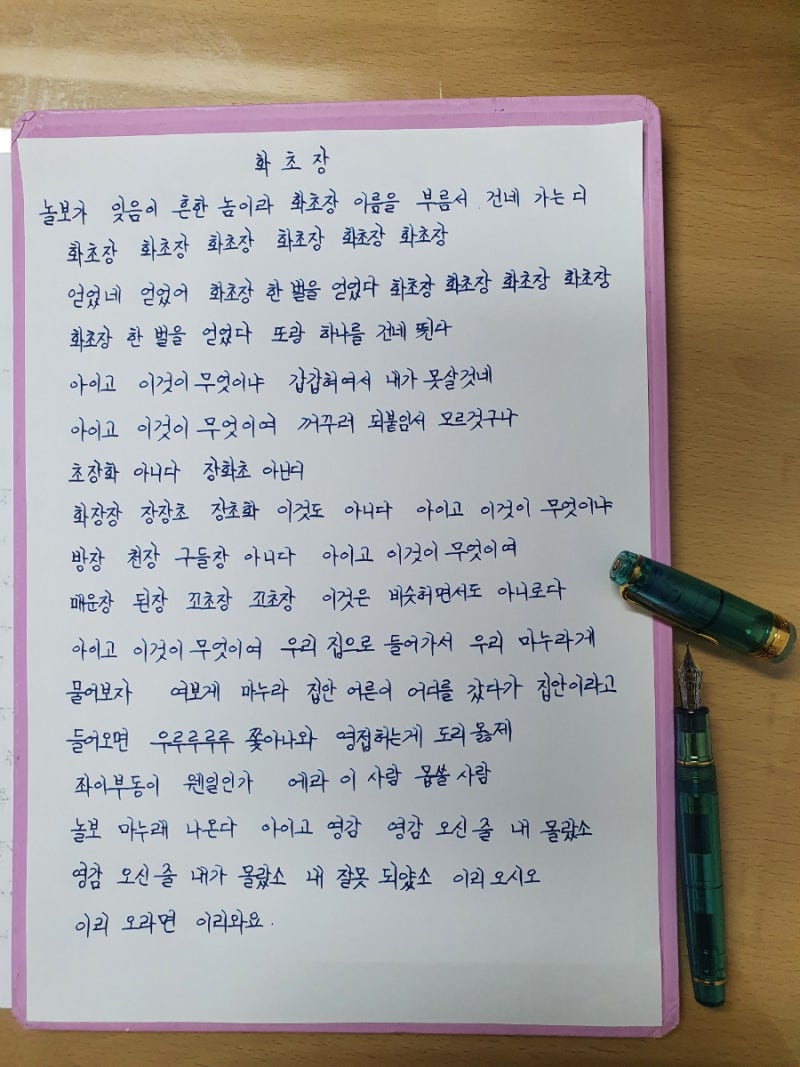 화초장
놀보가 잊음이 흔한 놈이라 화초장 이름을 부름서 건네 가는디
화초장 화초장 화초장 화초장 화초장 화초장
얻었네 얻었어 화초장 한 벌을 얻었다 화초장 화초장 화초장 화초장
화초장 한 벌을 얻었다 또랑 하나를 건네 뛴다
아이고 이것이 무엇이냐 갑갑혀여서 내가 못살것네
아이고 이것이 무엇이여 꺼꾸러 되붙임서 모르것구나
초장화 아니다 장화초 아닌디
화장장 장장초 장초화 이것도 아니다 아이고 이것이 무엇이냐
방장 천장 구들장 아니다 아이고 이것이 무엇이여
매운장 된장 꼬초장 꼬초장 이것은 비슷허면서도 아니로다
아이고 이것이 무엇이여 우리 집으로 들어가서 우리 마누라게
물어보자 여보게 마누라 집안 어른이 어디를 갔다가 집안이라고
들어오면 우루루루루 쫓아나와 영접하는게 도리 옳제
좌이부동이 웬일인가 에라 이 사람 몹쓸 사람
놀보 마누래 나온다 아이고 영감 영감 오신 줄 내 몰랐소
영감 오신 줄 내가 몰랐소 내 잘못 되얐소 이리 오시오
이리 오라면 이리와요.